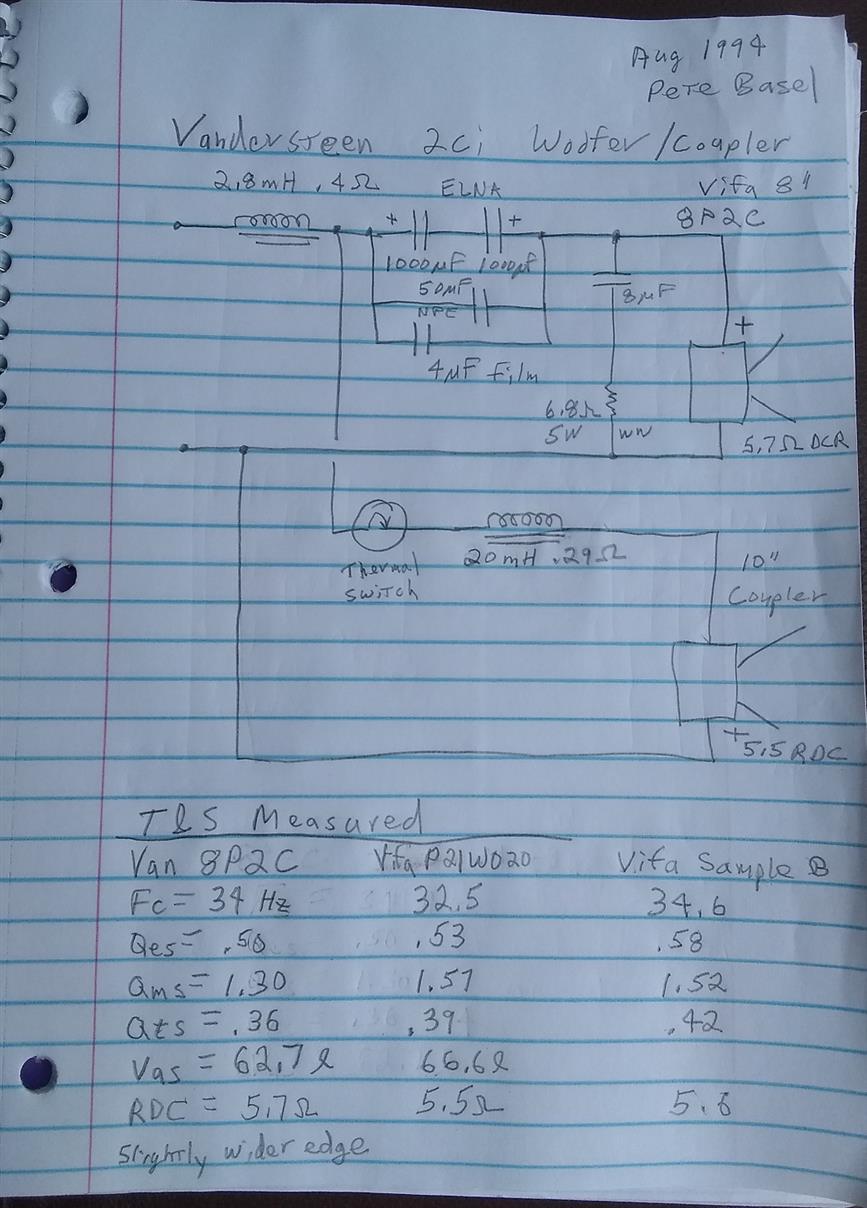 Aug 1994
Pete Basel
Vandersteen 2ci Woofer/Coupler
2,8mH .4Ω ELNA Vifa 8"
8P2C
+ +
1000µF 1000µF
50µF
NPE
8µF
+
4µF Film
6.8Ω
5W WW
5,7Ω DCR
Thermal
Switch
20mH .29Ω
10"
Coupler
+
5,5 RDC
T&S Measured
Van 8P2C Vifa P21WO20 Vifa Sample B
Fc = 34 Hz 32.5 34.6
Qes = .50 .53 .58
Qms = 1.30 1.51 1.52
Qts = .36 .39 .42
Vas = 62.7 l 66.6 l
RDC = 5.7Ω 5.5Ω 5.6
Slightly wider edge